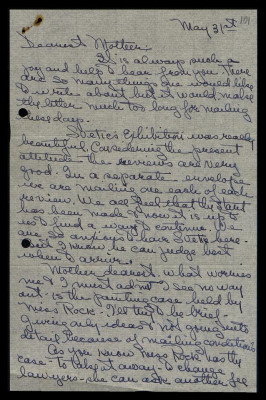 May 31st
101
Dearest Mother
It is always such a
joy and help to hear from you. There
are so many things one would like
to write about but it would make
the letter much too long for mailing
these days.
Svetic's Exhibition was really
beautiful. Considering the present
attitude - the reviews are very
good. In a separate envelope
we are mailing one each of each
review. We all feel that the start
has been made & now it is up to
us to find a way to continue. We
are so anxious to have Svetic here -
but I know he can judge best
when to arrive.
Mother dearest, what worries
me & I must admit I see no way
out - is the painting case held by
Miss Rock. I'll try to be brief -
giving only ideas & not going into
detail because of mailing conditions.
As you know Miss Rock has the
case - to take it away - to change
lawyers - she can ask another fee